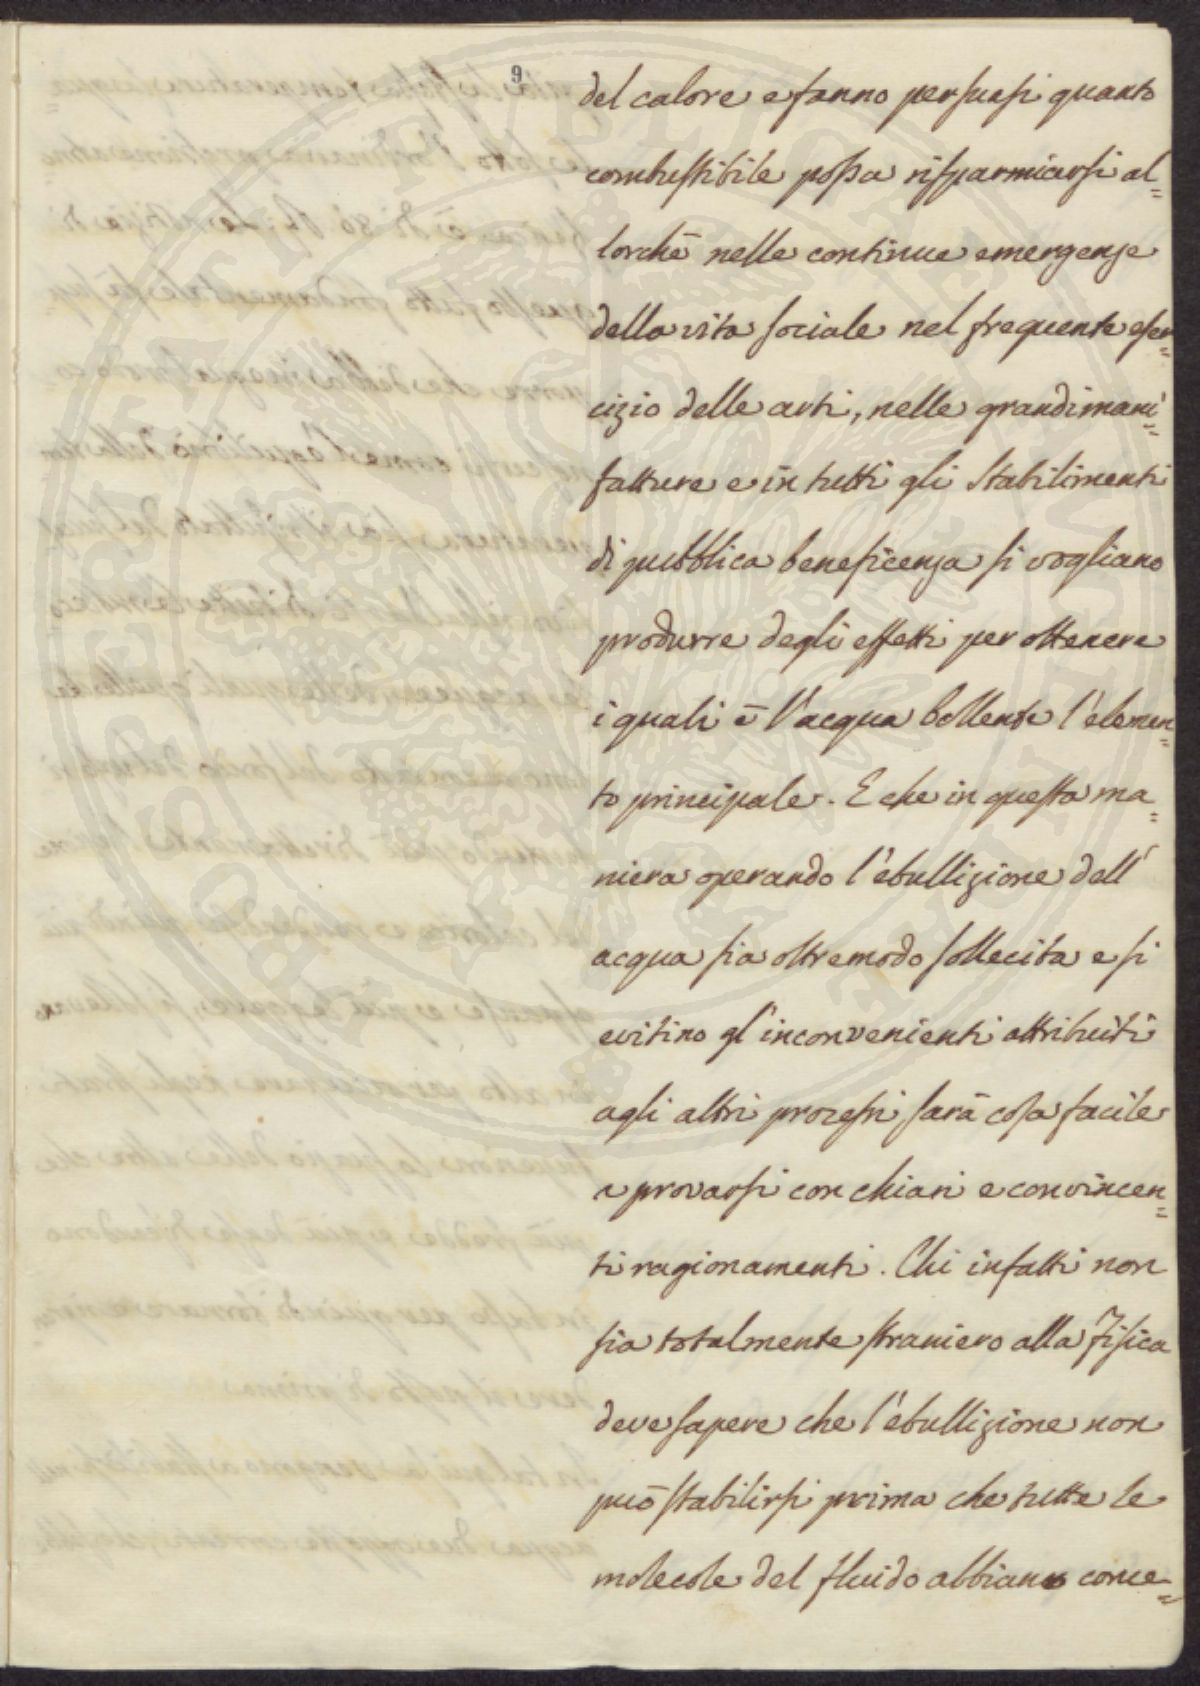 9
del calore e fanno persuasi quanto
combustibile possa risparmiarsi al=
lorchè nelle continue emergenze
della vita sociale nel frequente eser=
cizio delle arti, nelle grandi mani=
fatture e in tutti gli Stabilimenti
di pubblica beneficenza si vogliano
produrre degli effetti per ottenere
i quali è l'acqua bollente l'elemen=
to principale. E che in questa ma=
niera operando l'ebullizione dell'
acqua sia oltremodo sollecita e si
evitino gl'inconvenienti attribuiti
agli altri processi sarà cosa facile
a provarsi con chiari e convincen=
ti ragionamenti. Chi infatti non
sia totalmente straniero alla Fisica
deve sapere che l'ebullizione non
può stabilirsi prima che tutte le
molecole del fluido abbiano conce=